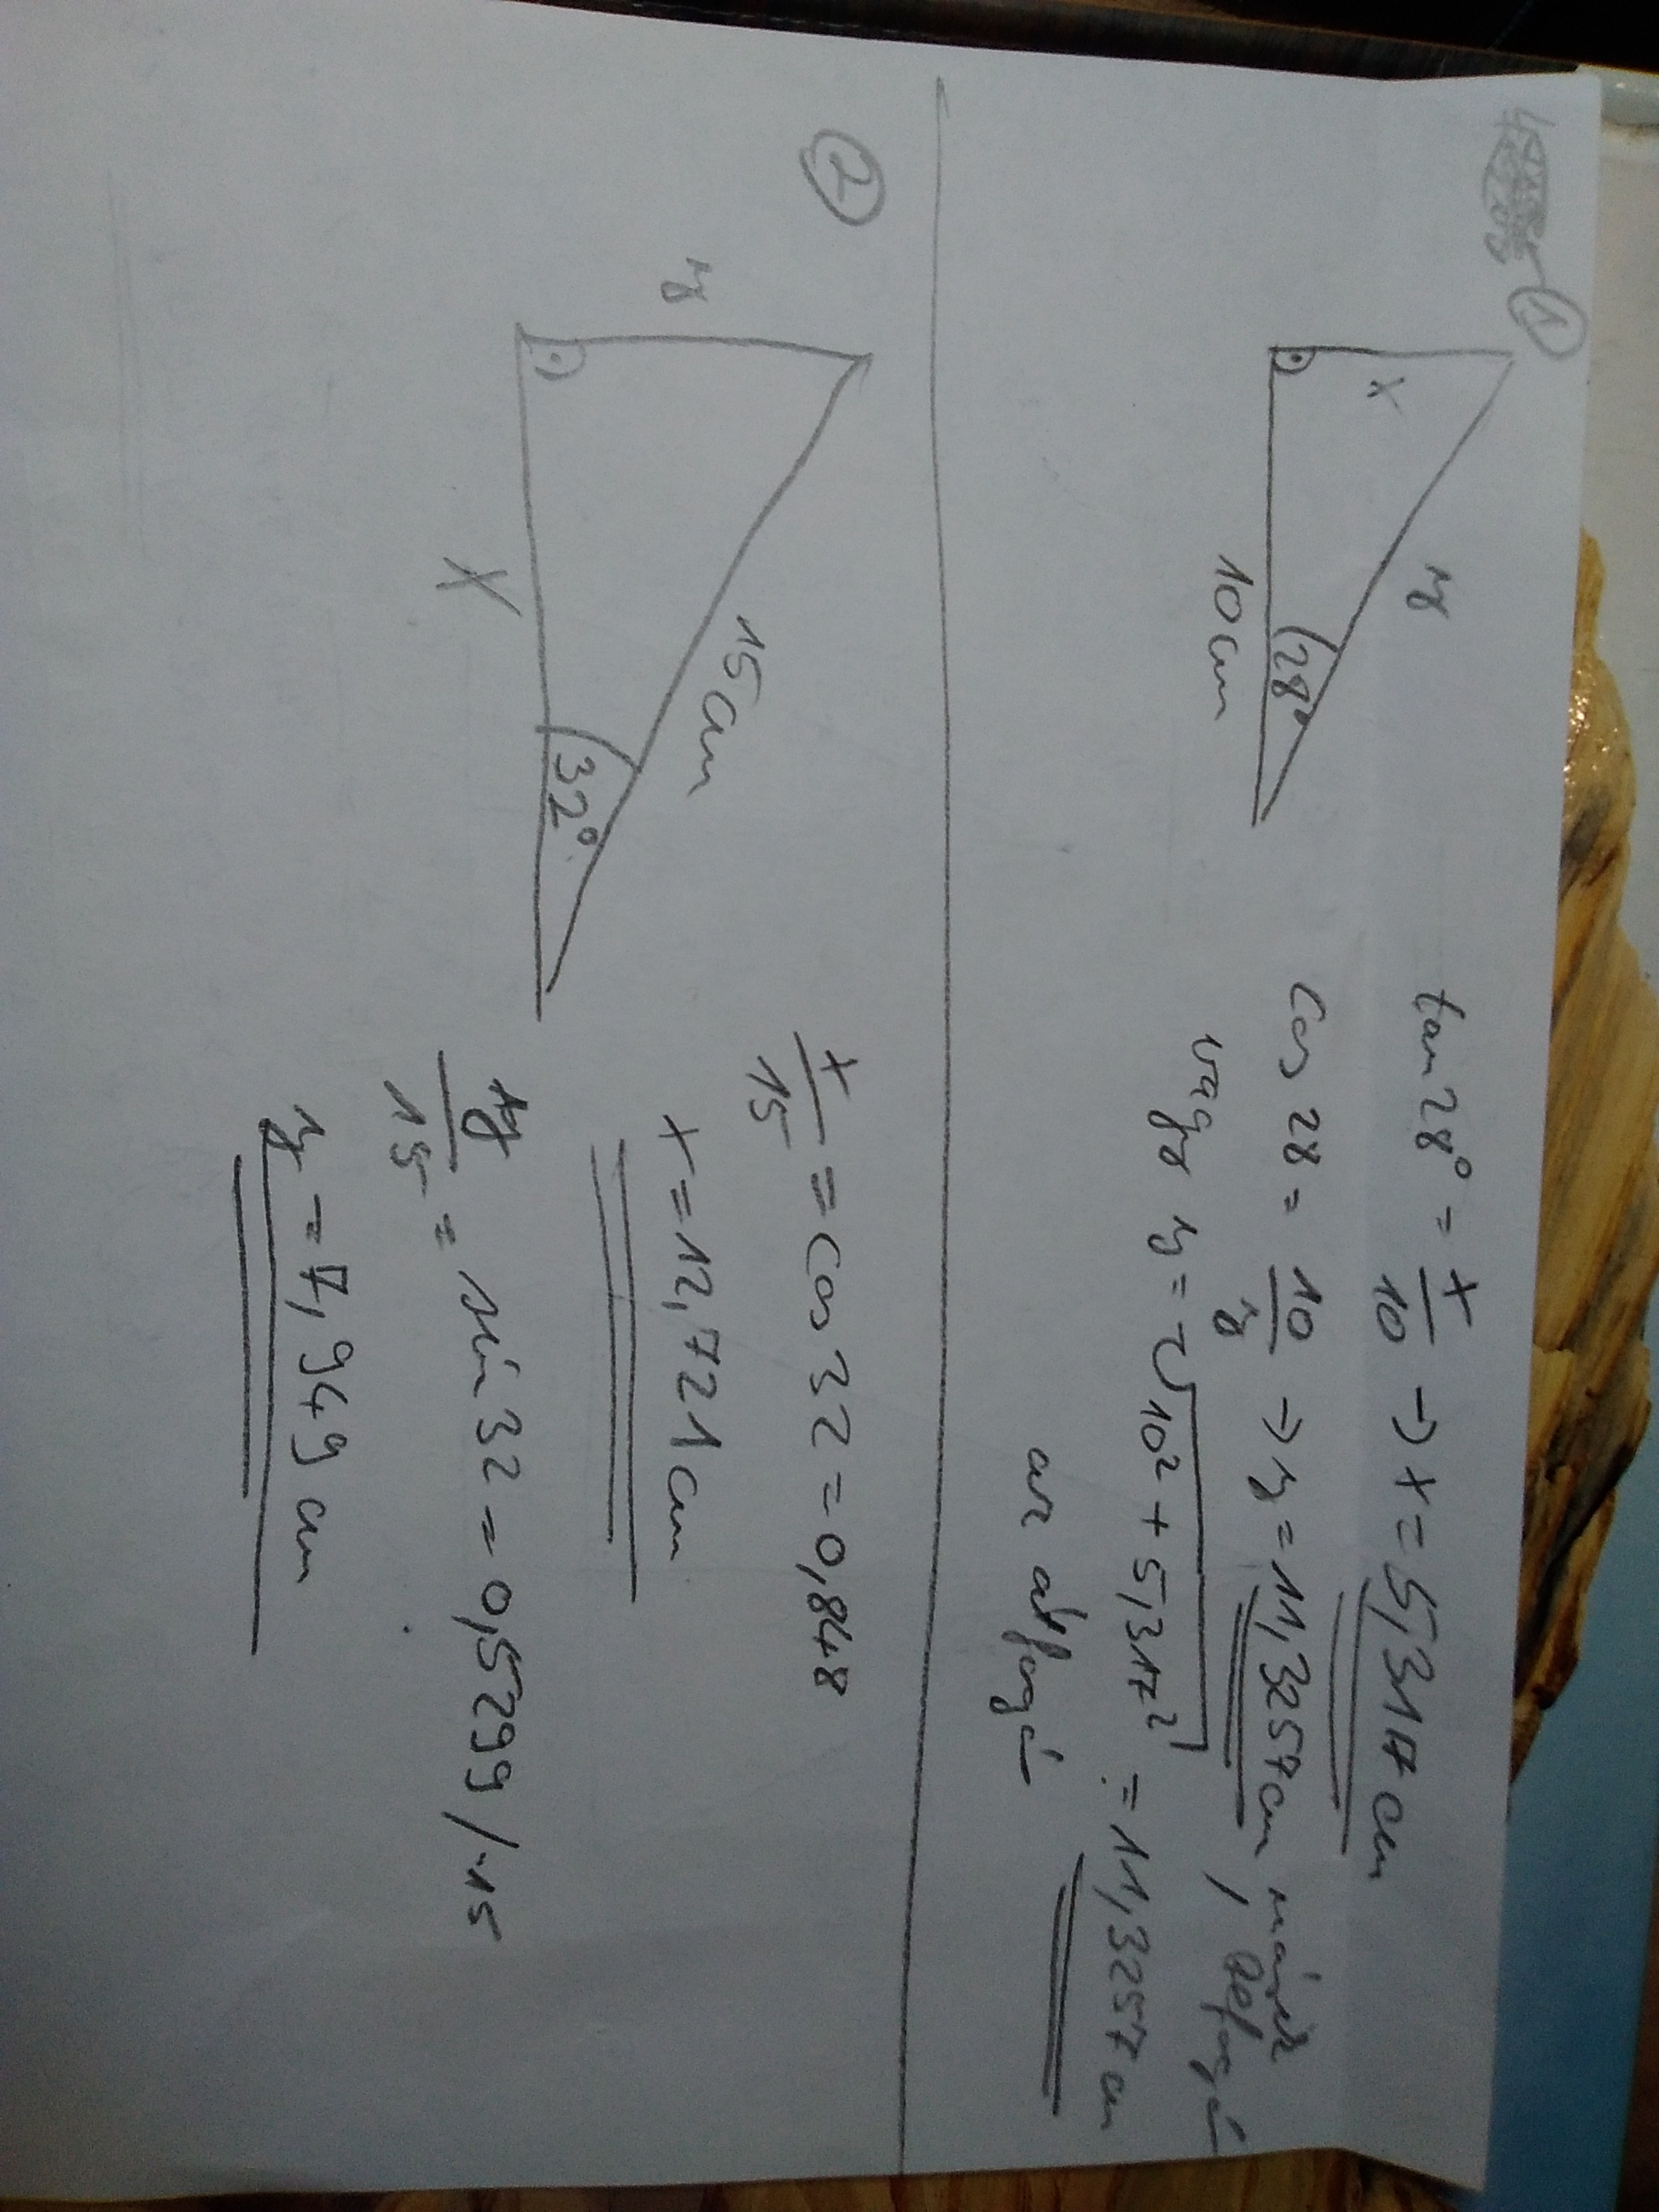 ①
x
y
28°
10cm
tan 28° = x/10 → x = 5,317 cm
cos 28 = 10/y → y = 11,3257 cm
vagy y = √10² + 5,317² = 11,3257 cm
②
y
15cm
32°
x
x/15 = cos 32 = 0,848
x = 12,721 cm
y/15 = sin 32 = 0,5299 /·15
y = 7,949 cm